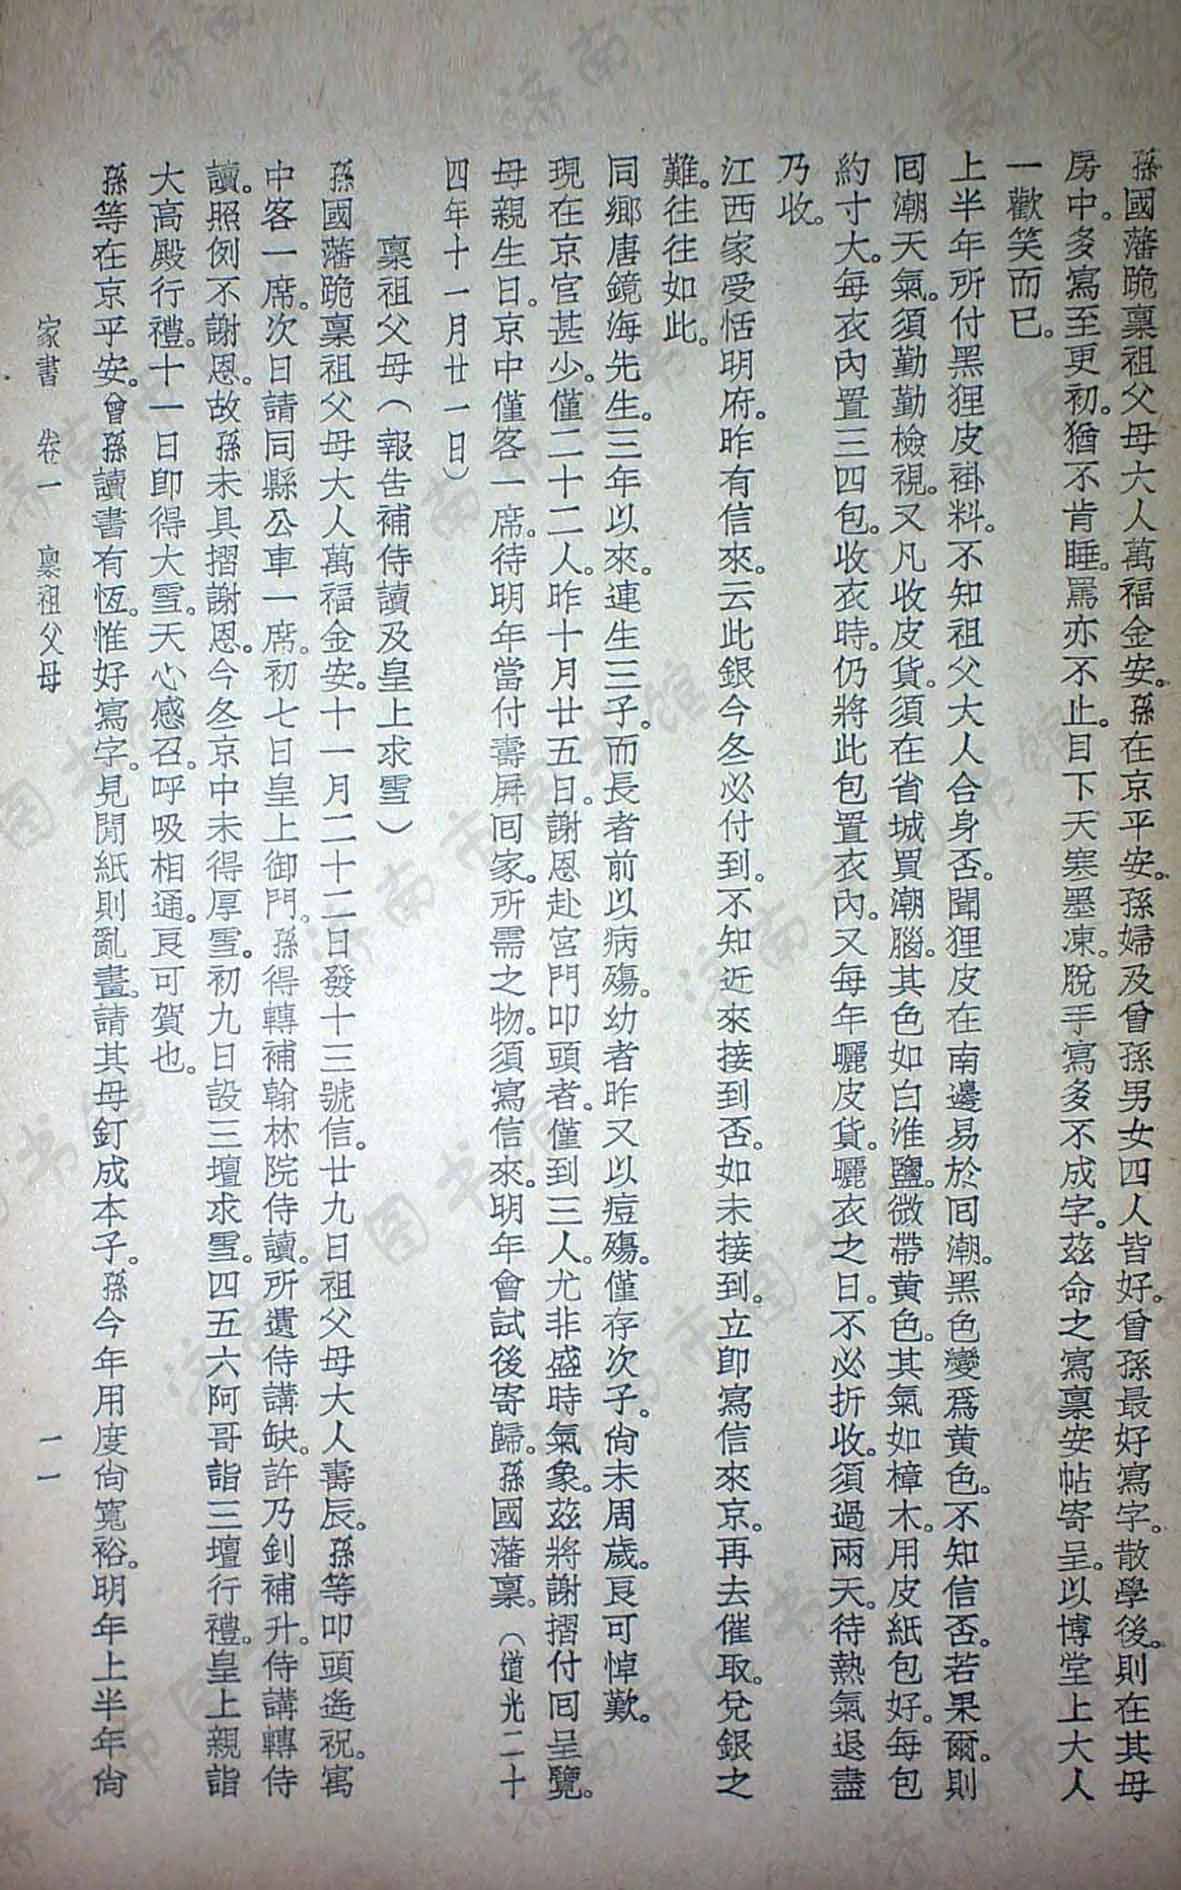 孫國藩跪稟祖父母大人萬福金安。孫在京平安。孫婦及曾孫男女四人皆好。曾孫最好寫字。散學後。則在其母
房中。多寫至更初。猶不肯睡。罵亦不止。目下天寒墨凍。脫手寫多不成字。茲命之寫稟安帖寄呈。以博堂上大人
一歡笑而已。
上半年所付黑狸皮褂料。不知祖父大人合身否。聞狸皮在南邊易於回潮。黑色變爲黃色。不知信否。若果爾。則
回潮天氣。須勤勤檢視。又凡收皮貨。須在省城買潮腦。其色如白淮鹽。微帶黃色。其氣如樟木。用皮紙包好。每包
約寸大。每衣內置三四包。收衣時。仍將此包置衣內。又每年曬皮貨。曬衣之日。不必折收。須過兩天。待熱氣退盡
乃收。
江西家受恬明府。昨有信來。云此銀今冬必付到。不知近來接到否。如未接到。立卽寫信來京。再去催取。兌銀之
難。往往如此。
同鄉唐鏡海先生。三年以來。連生三子。而長者前以病殤。幼者昨又以痘殤。僅存次子。尙未周歲。良可悼歎。
現在京官甚少。僅二十二人。昨十月廿五日。謝恩赴宮門叩頭者。僅到三人。尤非盛時氣象。茲將謝摺付回呈覽。
母親生日。京中僅客一席。待明年當付壽屏回家。所需之物。須寫信來。明年會試後寄歸。孫國藩稟。（道光二十
四年十一月廿一日）
稟祖父母（報告補侍讀及皇上求雪）
孫國藩跪稟祖父母大人萬福金安。十一月二十二日發十三號信。廿九日祖父母大人壽辰。孫等叩頭遙祝。寓
中客一席。次日請同縣公車一席。初七日皇上御門。孫得轉補翰林院侍讀。所遺侍講缺。許乃釗補升。侍講轉侍
讀。照例不謝恩。故孫未具摺謝恩。今冬京中未得厚雪。初九日設三壇求雪。四五六阿哥詣三壇行禮。皇上親詣
大高殿行禮。十一日卽得大雪。天心感召。呼吸相通。良可賀也。
孫等在京平安。曾孫讀書有恆。惟好寫字。見閒紙則亂畫。請其母釘成本子。孫今年用度尙寬裕。明年上半年尙
家書 卷一 稟祖父母 一一